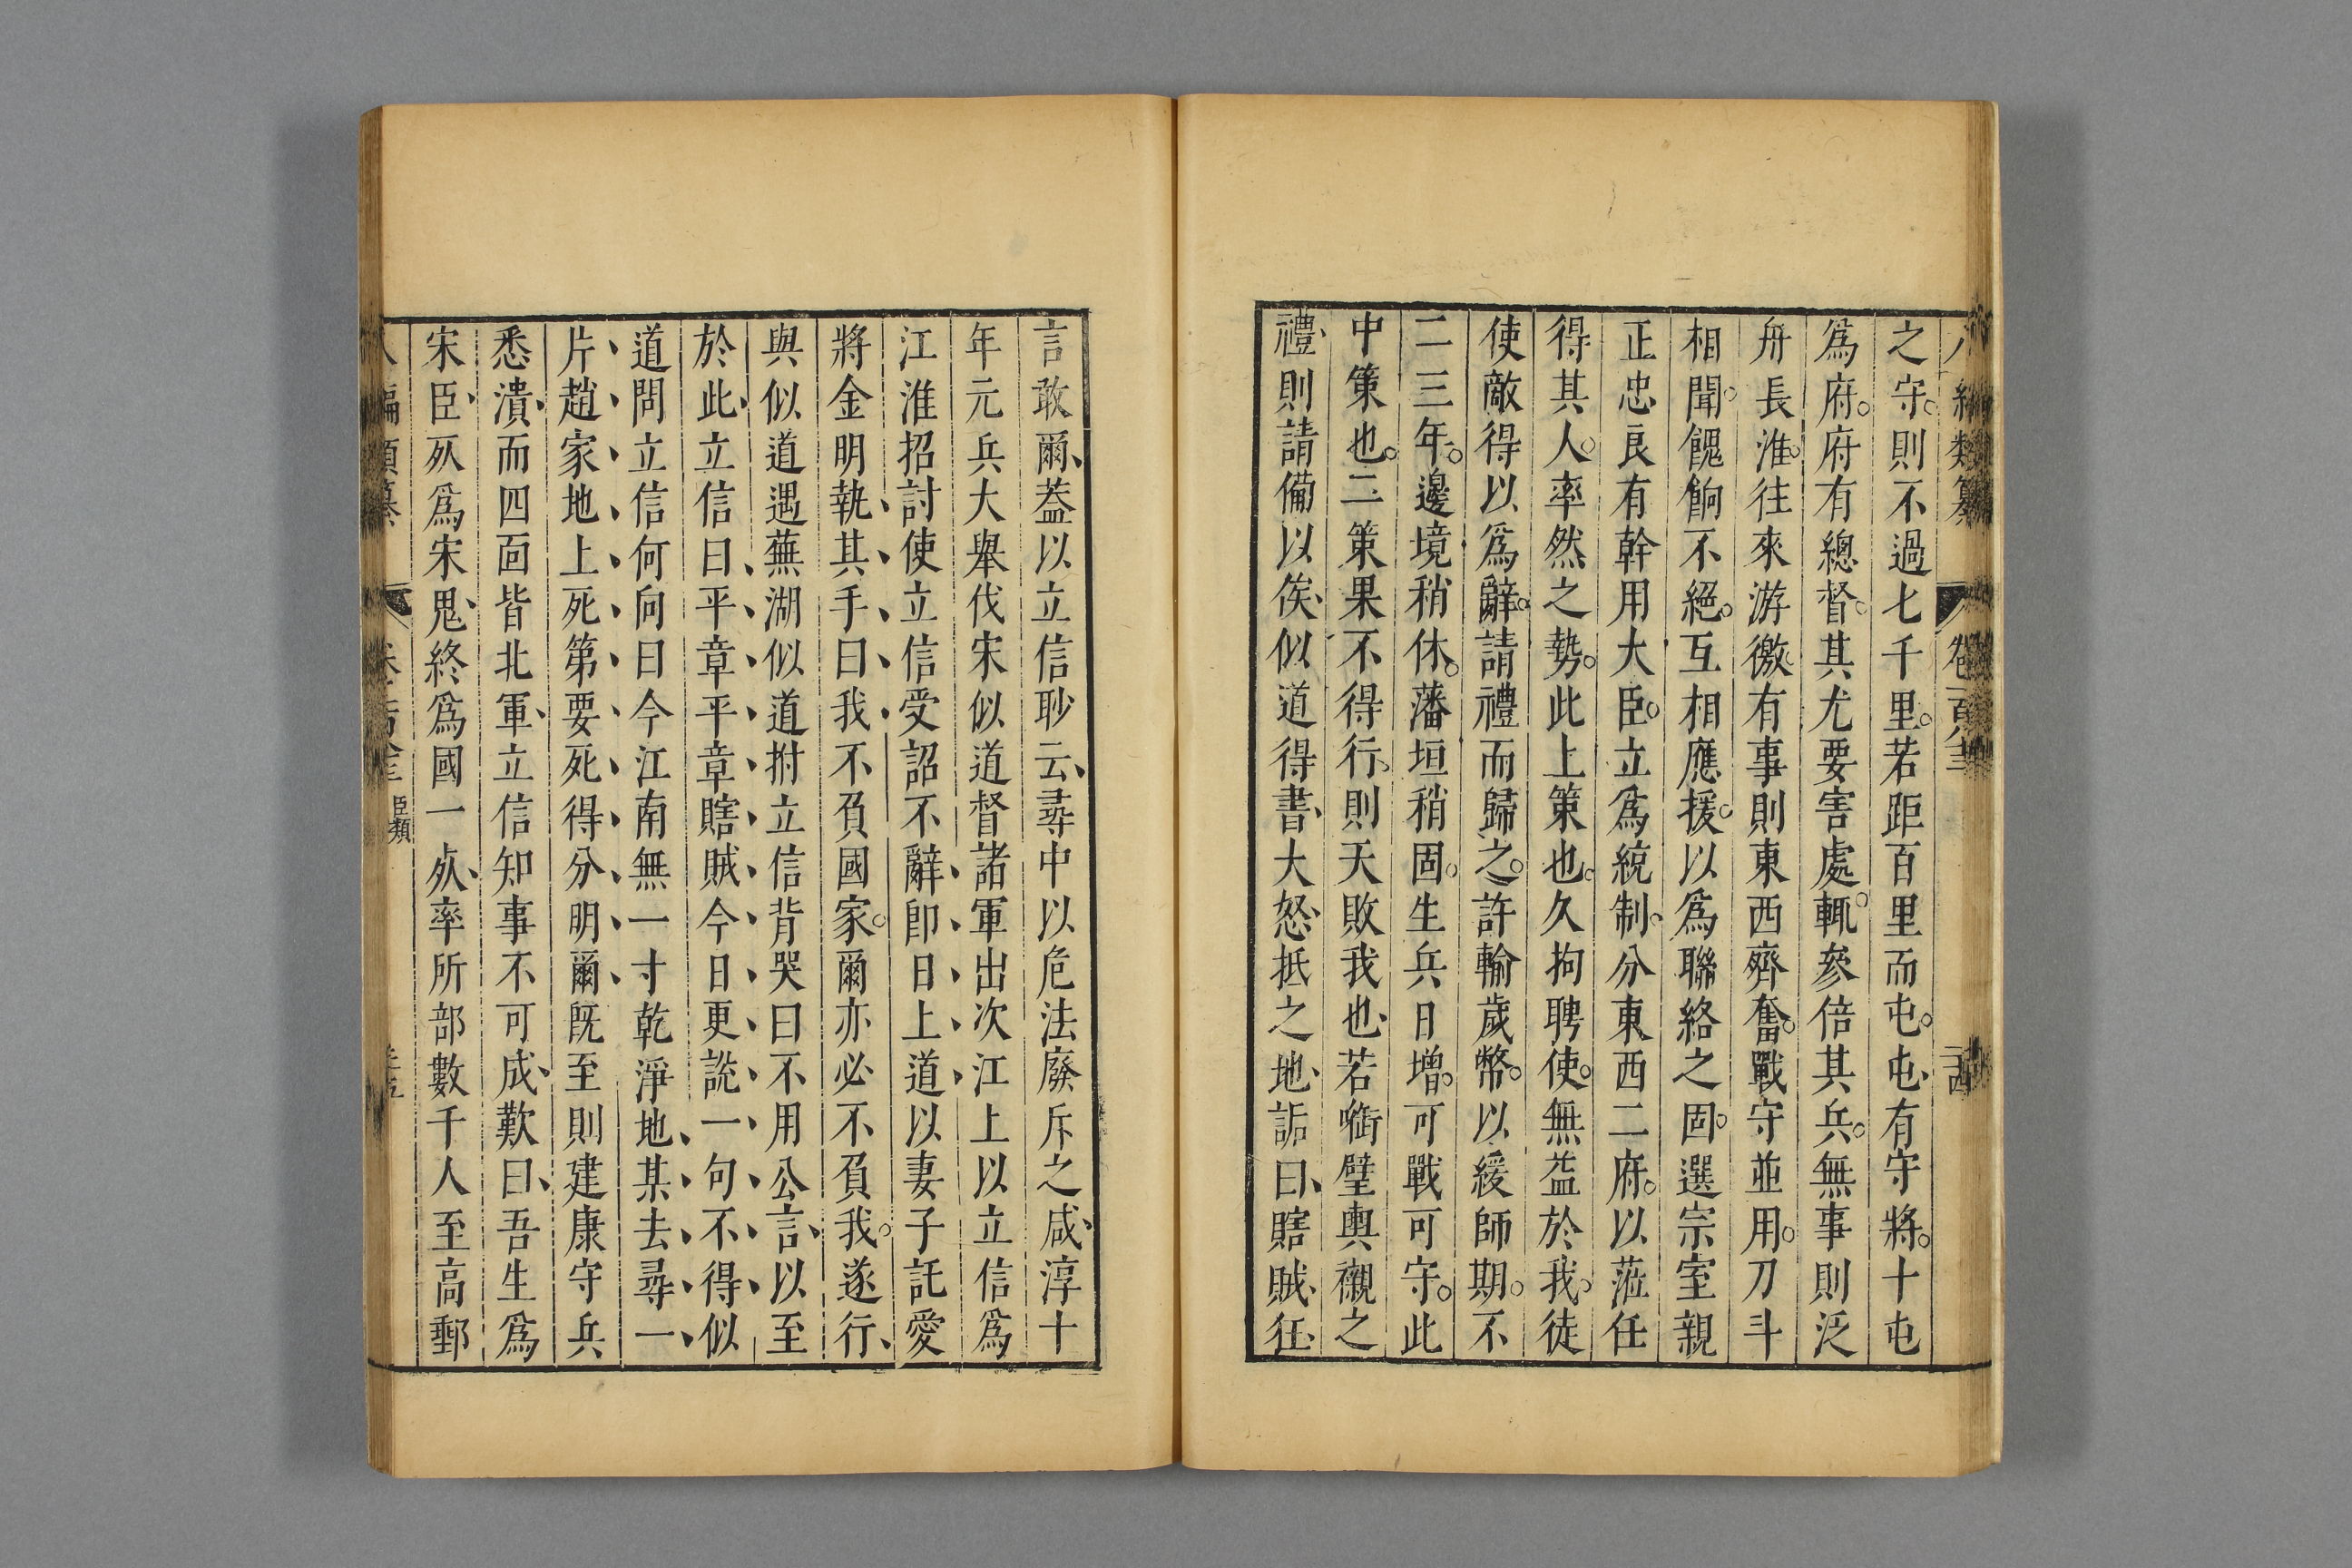 編類纂 卷一百八十三 二十四
之守則不過七千里若距百里而屯屯有守將十屯
爲府府有總督其尤要害處輒參倍其兵無事則泛
舟長淮往來游徼有事則東西齊奮戰守並用刀斗
相聞餽餉不絕互相應援以爲聯絡之固選宗室親
正忠良有幹用大臣立爲統制分東西二府以蒞任
得其人率然之勢此上策也久拘聘使無益於我徒
使敵得以爲辭請禮而歸之許輸歲幣以緩師期不
二三年邊境稍休藩垣稍固生兵日增可戰可守此
中策也二策果不得行則天敗我也若啣璧輿櫬之
禮則請備以俟似道得書大怒抵之地詬曰瞎賊狂
言敢爾葢以立信眇云尋中以危法廢斥之咸淳十
年元兵大舉伐宋似道督諸軍出次江上以立信爲
江淮招討使立信受詔不辭卽日上道以妻子託愛
將金明執其手曰我不負國家爾亦必不負我遂行
與似道遇蕪湖似道拊立信背哭曰不用公言以至
於此立信曰平章平章瞎賊今日更說一句不得似
道問立信何向曰今江南無一寸乾淨地某去尋一
片趙家地上死第要死得分明爾既至則建康守兵
悉潰而四面皆北軍立信知事不可成歎曰吾生爲
宋臣死爲宋鬼終爲國一死率所部數千人至高郵
編類纂 臣類